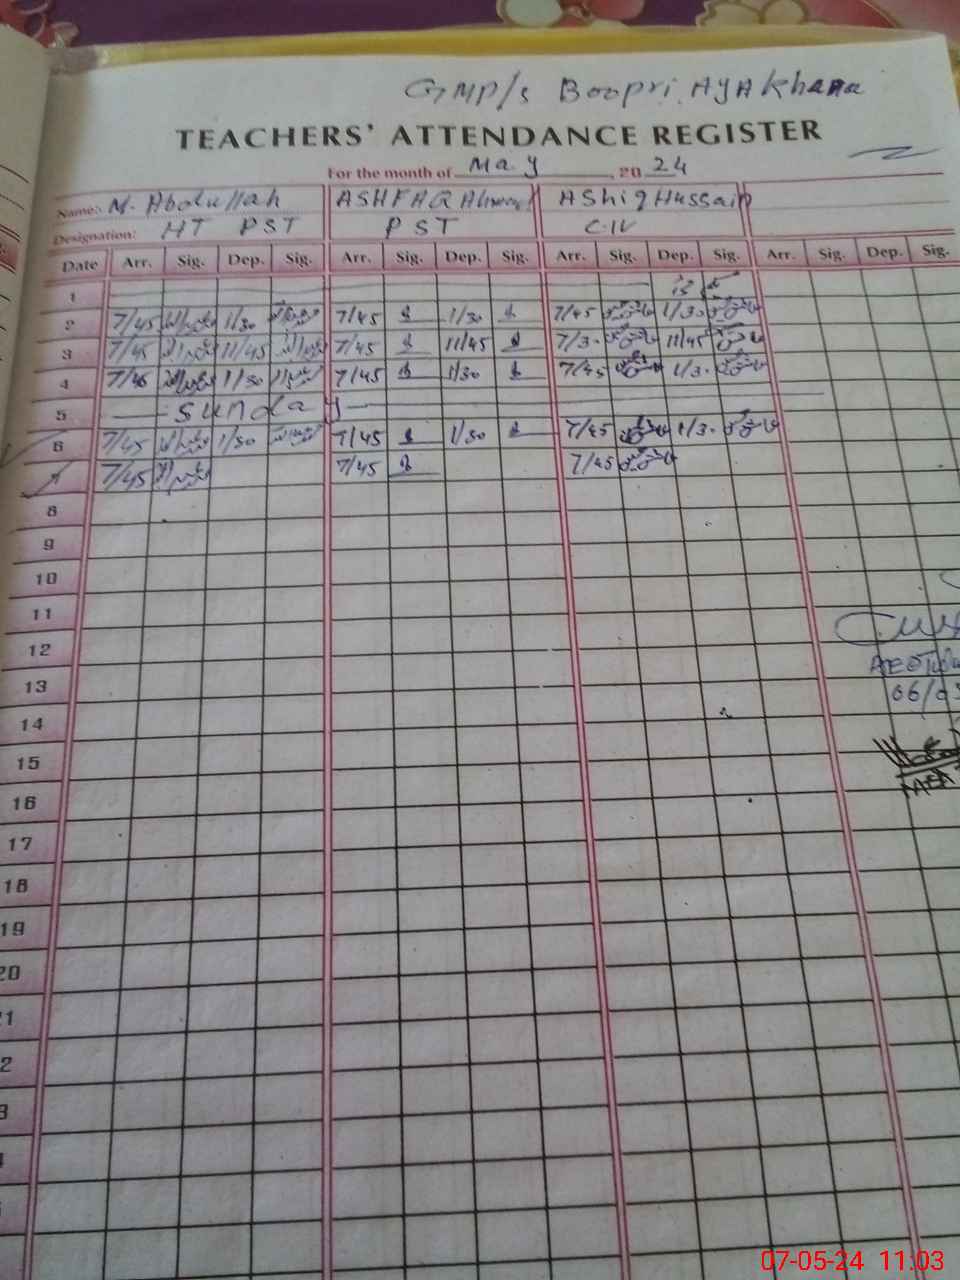 GMP/s Boopri AyAkhana
TEACHERS' ATTENDANCE REGISTER
For the month of May, 20 24
Name: M. Abdullah ASHFAQ Ahmad AShiq Hussain
Designation: HT PST PST C-IV
Date Arr. Sig. Dep. Sig. Arr. Sig. Dep. Sig. Arr. Sig. Dep. Sig. Arr. Sig. Dep. Sig.
1
2 7/45 1/30 7/45 1/30 7/45 1/30
3 7/45 11/45 7/45 11/45 7/30 11/45
4 7/45 1/30 7/45 1/30 7/45 1/30
5 Sunday
6 7/45 1/30 7/45 1/30 7/45 1/30
7/45 7/45 7/45
8
9
10
11
12
13
06/05
14
15
MEA
16
17
18
19
20
07-05-24 11:03